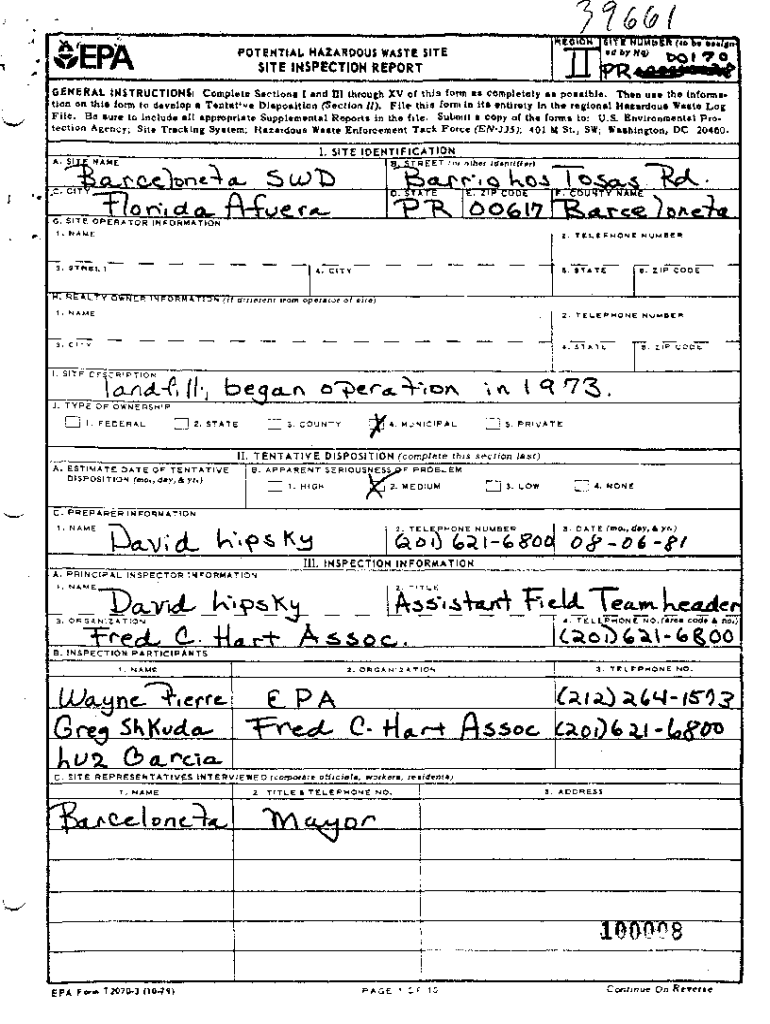 39661
EPA
POTENTIAL HAZARDOUS WASTE SITE
SITE INSPECTION REPORT
REGION
II
SITE NUMBER (to be assigned by Hq)
00170
PR
GENERAL INSTRUCTIONS: Complete Sections I and III through XV of this form as completely as possible. Then use the informa-
tion on this form to develop a Tentative Disposition (Section II). File this form in its entirety in the regional Hazardous Waste Log
File. Be sure to include all appropriate Supplemental Reports in the file. Submit a copy of the forms to: U.S. Environmental Pro-
tection Agency; Site Tracking System; Hazardous Waste Enforcement Task Force (EN-335); 401 M St., SW; Washington, DC 20460.
I. SITE IDENTIFICATION
A. SITE NAME B. STREET (or other identifier)
Barceloneta SWD Barrio hos Tosas Rd.
C. CITY D. STATE E. ZIP CODE F. COUNTY NAME
Florida Afuera PR 00617 Barceloneta
G. SITE OPERATOR INFORMATION
1. NAME 2. TELEPHONE NUMBER
3. STREET 4. CITY 5. STATE 6. ZIP CODE
H. REALTY OWNER INFORMATION (if different from operator of site)
1. NAME 2. TELEPHONE NUMBER
3. CITY 4. STATE 5. ZIP CODE
I. SITE DESCRIPTION
landfill; began operation in 1973.
J. TYPE OF OWNERSHIP
1. FEDERAL 2. STATE 3. COUNTY X 4. MUNICIPAL 5. PRIVATE
II. TENTATIVE DISPOSITION (complete this section last)
A. ESTIMATE DATE OF TENTATIVE B. APPARENT SERIOUSNESS OF PROBLEM
DISPOSITION (mo., day, & yr.) 1. HIGH X 2. MEDIUM 3. LOW 4. NONE
C. PREPARER INFORMATION
1. NAME 2. TELEPHONE NUMBER 3. DATE (mo., day, & yr.)
David Lipsky (201) 621-6800 08-06-81
III. INSPECTION INFORMATION
A. PRINCIPAL INSPECTOR INFORMATION
1. NAME 2. TITLE
David Lipsky Assistant Field Team Leader
3. ORGANIZATION 4. TELEPHONE NO. (area code & no.)
Fred C. Hart Assoc. (201)621-6800
B. INSPECTION PARTICIPANTS
1. NAME 2. ORGANIZATION 3. TELEPHONE NO.
Wayne Pierre EPA (212) 264-1573
Greg Shkuda Fred C. Hart Assoc (201)621-6800
Luz Garcia
C. SITE REPRESENTATIVES INTERVIEWED (corporate officials, workers, residents)
1. NAME 2. TITLE & TELEPHONE NO. 3. ADDRESS
Barceloneta Mayor
100008
EPA Form T2070-3 (10-79) PAGE 1 OF 10 Continue On Reverse